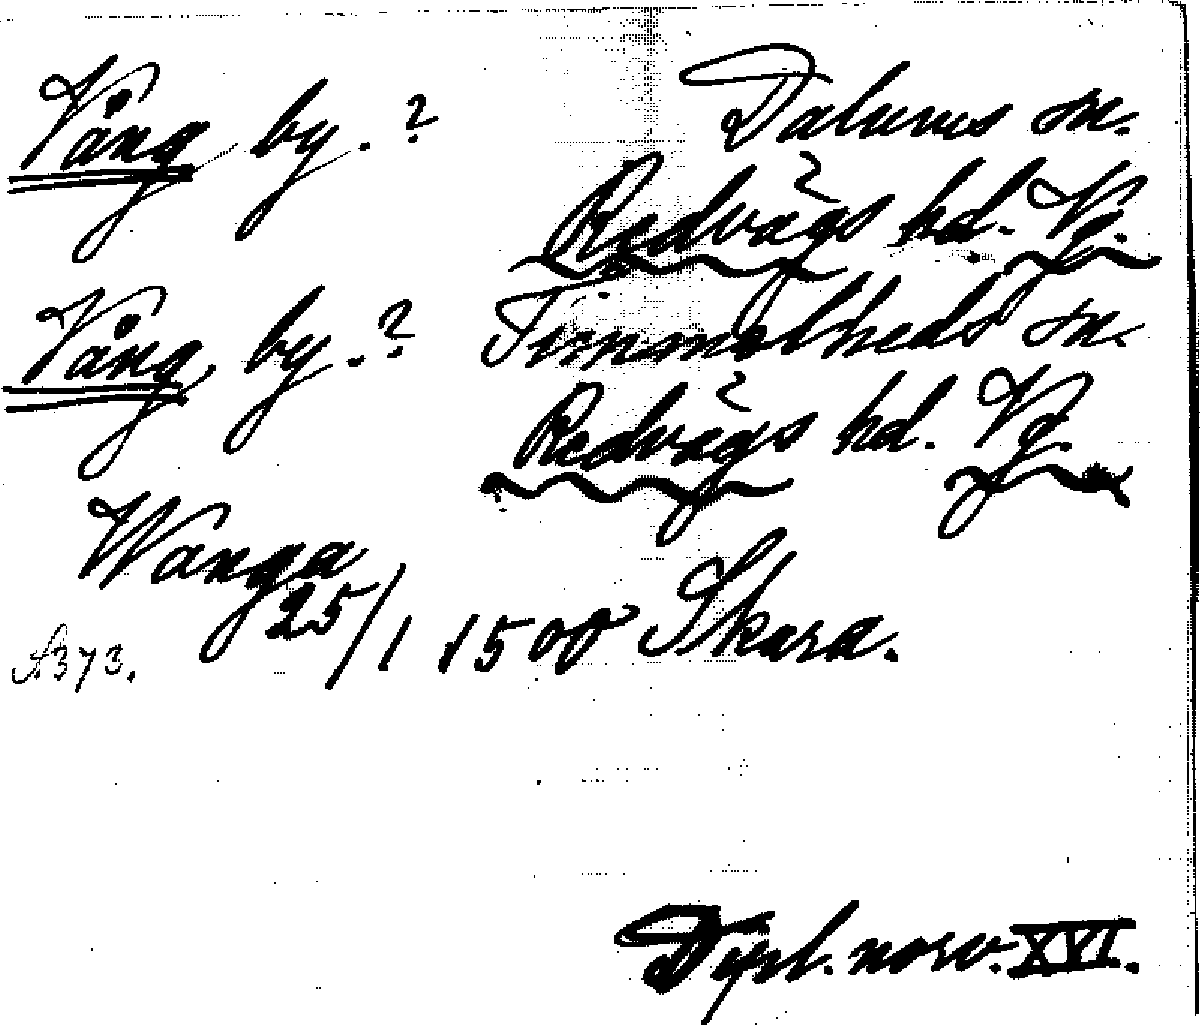 Vång by. ? Dalums sn.
Redvägs hd. Vg.
Vång by. ? Timmelheds sn.
Redvägs hd. Vg.
Wanga
25/1 1500 Skara.
S. 373.
Dipl. norv. XVI.